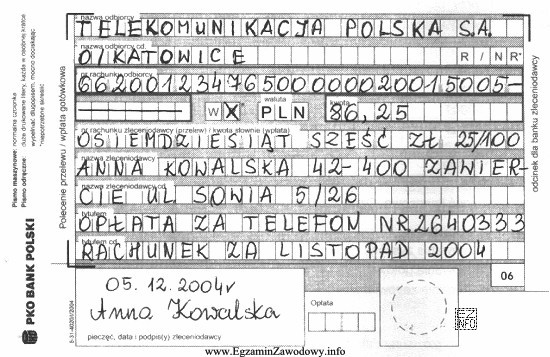 nazwa odbiorcy
TELEKOMUNIKACJA POLSKA S.A.
nazwa odbiorcy cd.
O/KATOWICE
R / N R*
nr rachunku odbiorcy
66200123476500000020015005-
waluta
kwota
W X PLN 86,25
nr rachunku zleceniodawcy (przelew) / kwota słownie (wpłata)
OSIEMDZIESIĄT SZEŚĆ ZŁ 25/100
nazwa zleceniodawcy
ANNA KOWALSKA 42-400 ZAWIER-
nazwa zleceniodawcy cd.
CIE UL SOWIA 5/26
tytułem
OPŁATA ZA TELEFON NR.2640333
tytułem cd.
RACHUNEK ZA LISTOPAD 2004
06
05.12.2004r
Anna Kowalska
pieczęć, data i podpis(y) zleceniodawcy
Opłata
EZ
INFO
Polecenie przelewu / wpłata gotówkowa
odcinek dla banku zleceniodawcy
PKO BANK POLSKI
www.EgzaminZawodowy.info